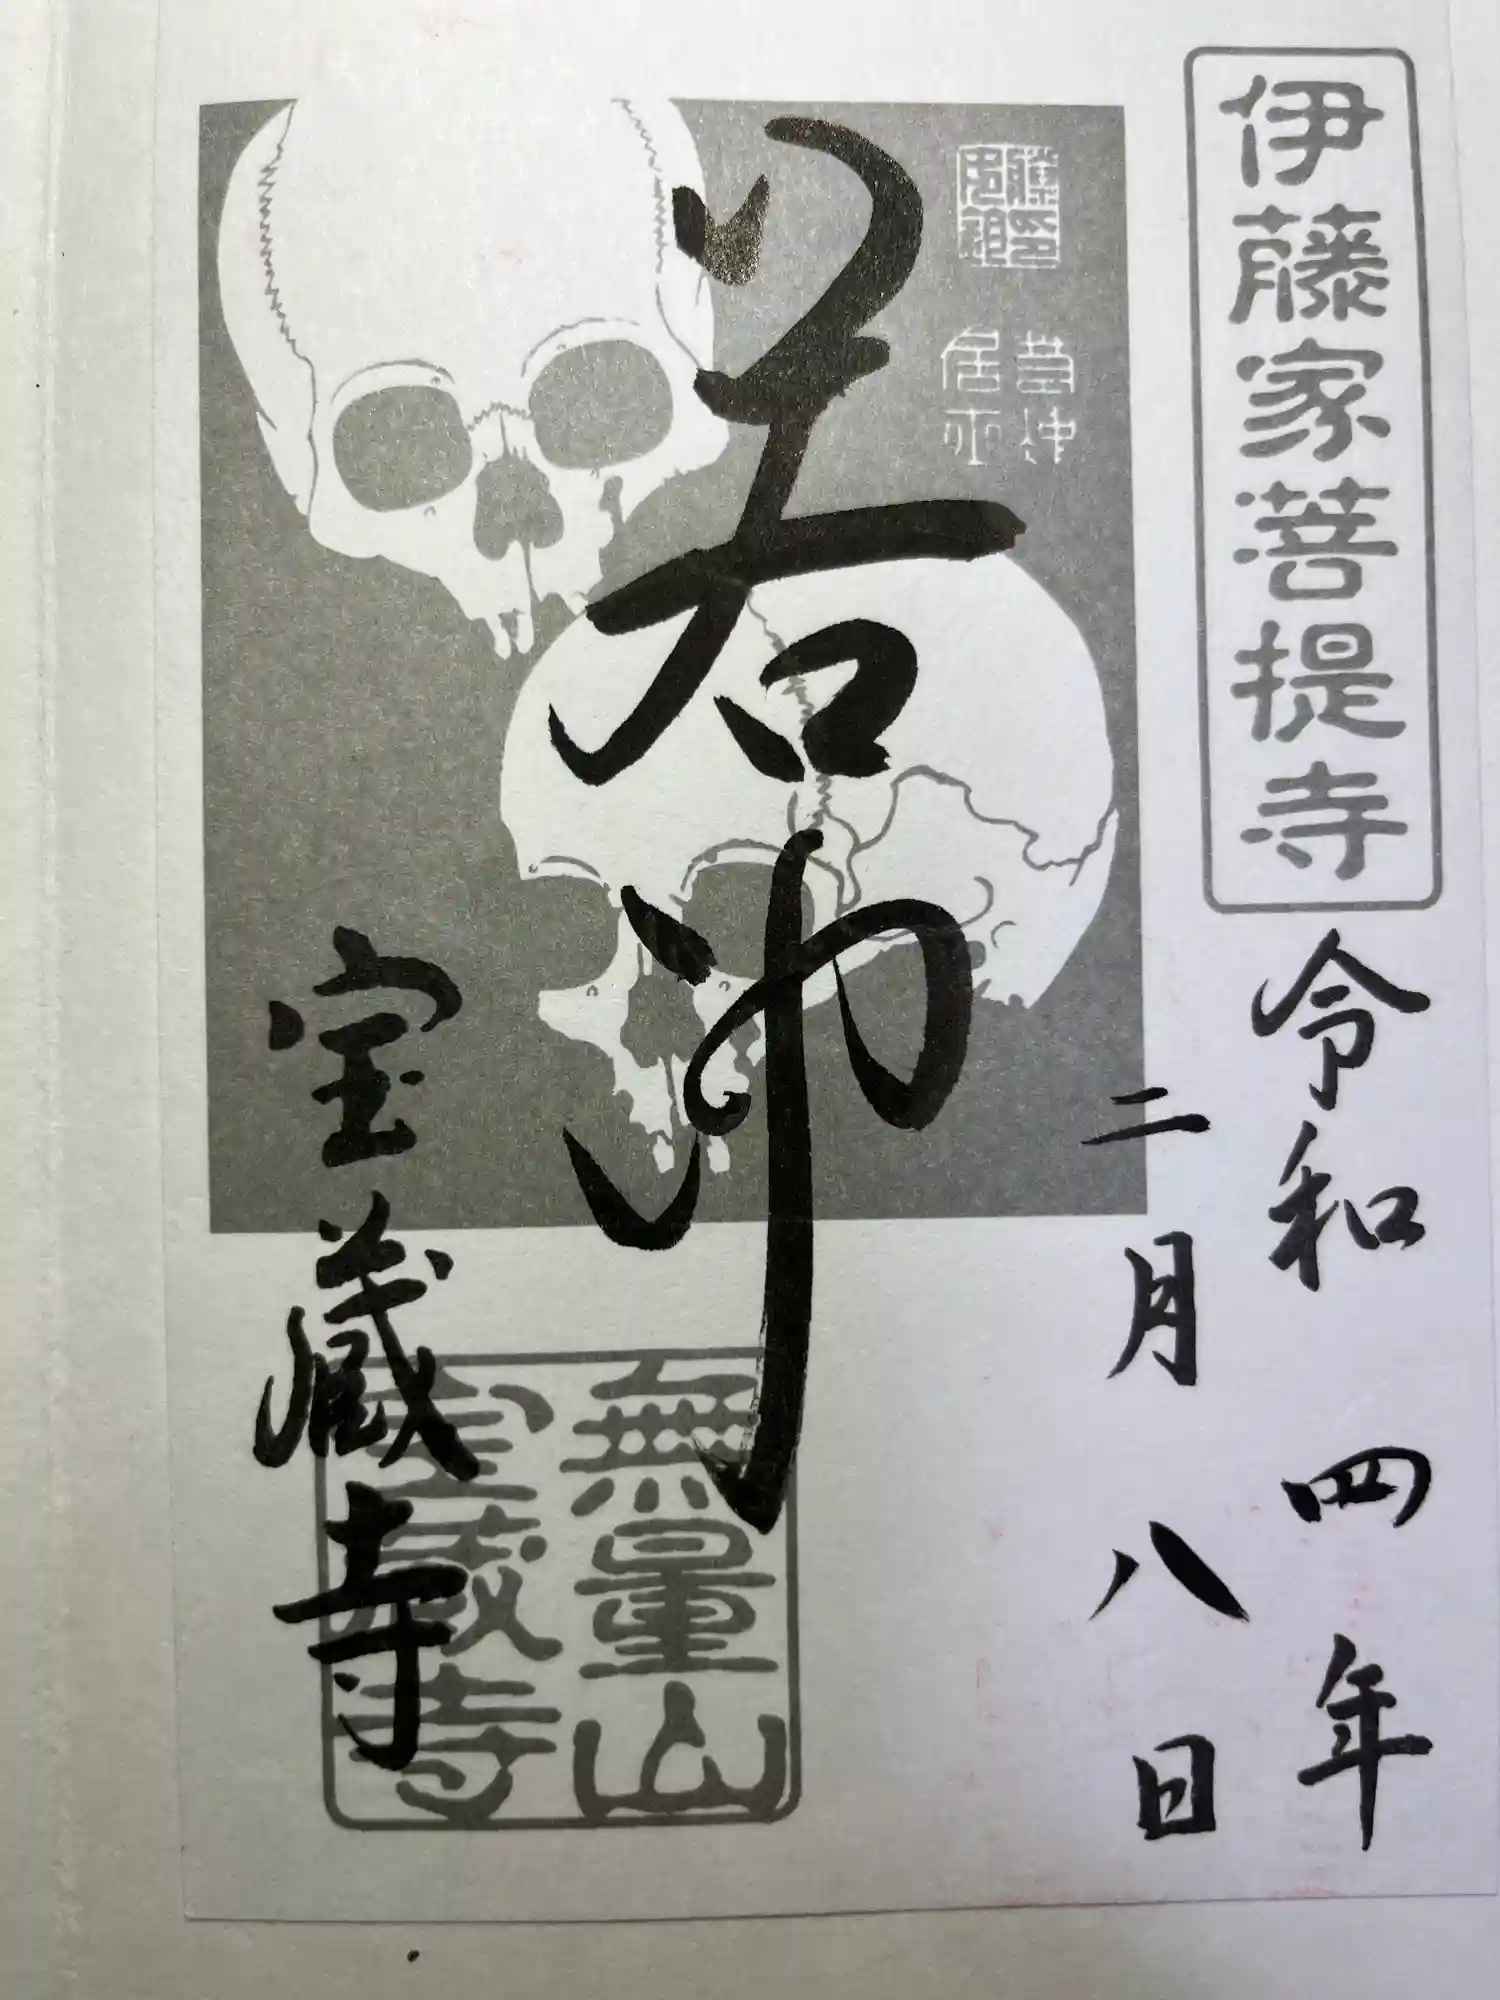 伊藤家菩提寺
令和四年
二月八日
藤汝鈞印
若冲居士
若冲
無量山
宝蔵寺
宝蔵寺